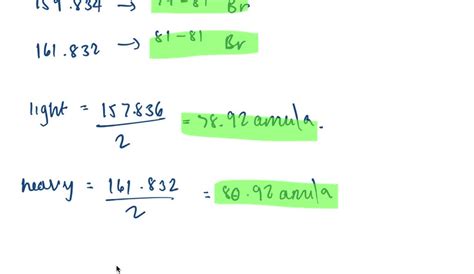 159.834 → 79-81 Br
161.832 → 81-81 Br
light = 157.836 / 2 = 78.92 amu/a.
heavy = 161.832 / 2 = 80.92 amu/a